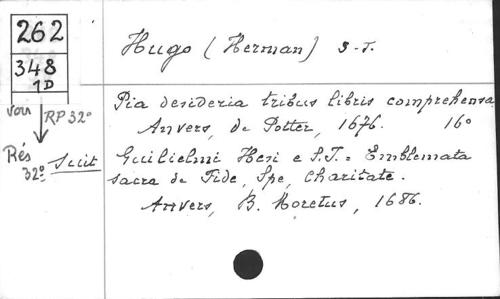 262
348
1D
voir RP 32º
Rés 32º
Hugo (Herman) S-J.
Pia desideria tribus libris comprehensa
Anvers, de Potter, 1676. 16º
Suit Guilielmi Hesi e S.J. = Emblemata
sacra de Fide, Spe, Charitate.
Anvers, B. Moretus, 1686.